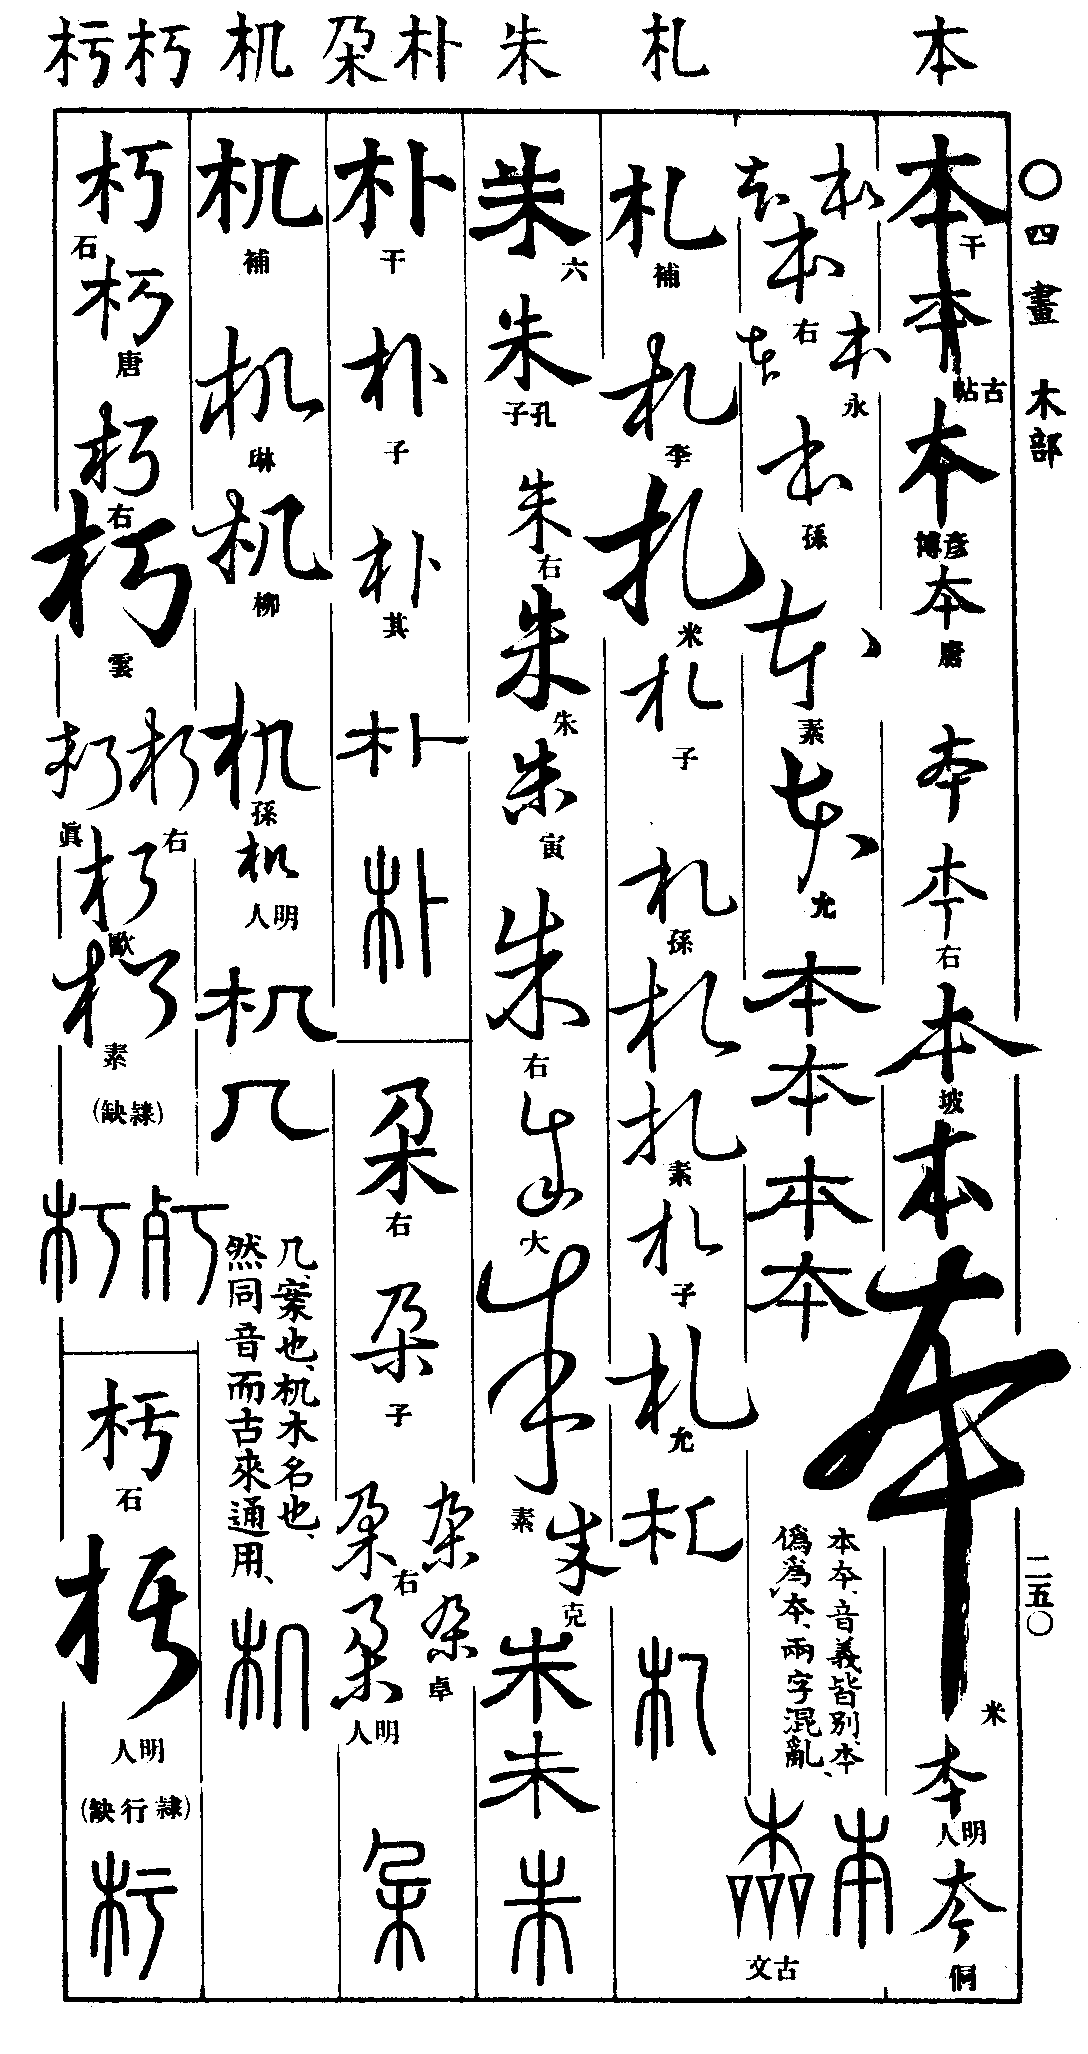 本 札 朱 朴 朶 机 朽 杇
〇四畫 木部
二五〇
本 干 本 古帖 本 彦博 本 唐 本 本 右 本 坡 本 本 米 本 明人 本 侗
本 本 本 右 本 本 永 本 孫 本 素 本 允 本 本 本 本
本夲、音義皆別、本
偽爲夲、兩字混亂、
本 本 古文
札 補 札 李 札 米 札 子 札 孫 札 札 素 札 子 札 允 札 札
朱 六 朱 孔子 朱 右 朱 朱 朱 寅 朱 右 朱 大 朱 素 朱 克 朱 朱 朱
朴 干 朴 子 朴 其 朴 朴
朶 右 朶 子 朶 朶 右 朶 朶 卓 明人 朶
机 補 机 琳 机 柳 机 孫 机 明人 机 几
几、案也、机木名也、
然同音而古來通用、
机
朽 石 朽 唐 朽 右 朽 雲 朽 右 朽 眞 朽 歐 朽 素 (隸缺) 朽 㱙
杇 石 杇 明人 (隸行缺) 杇